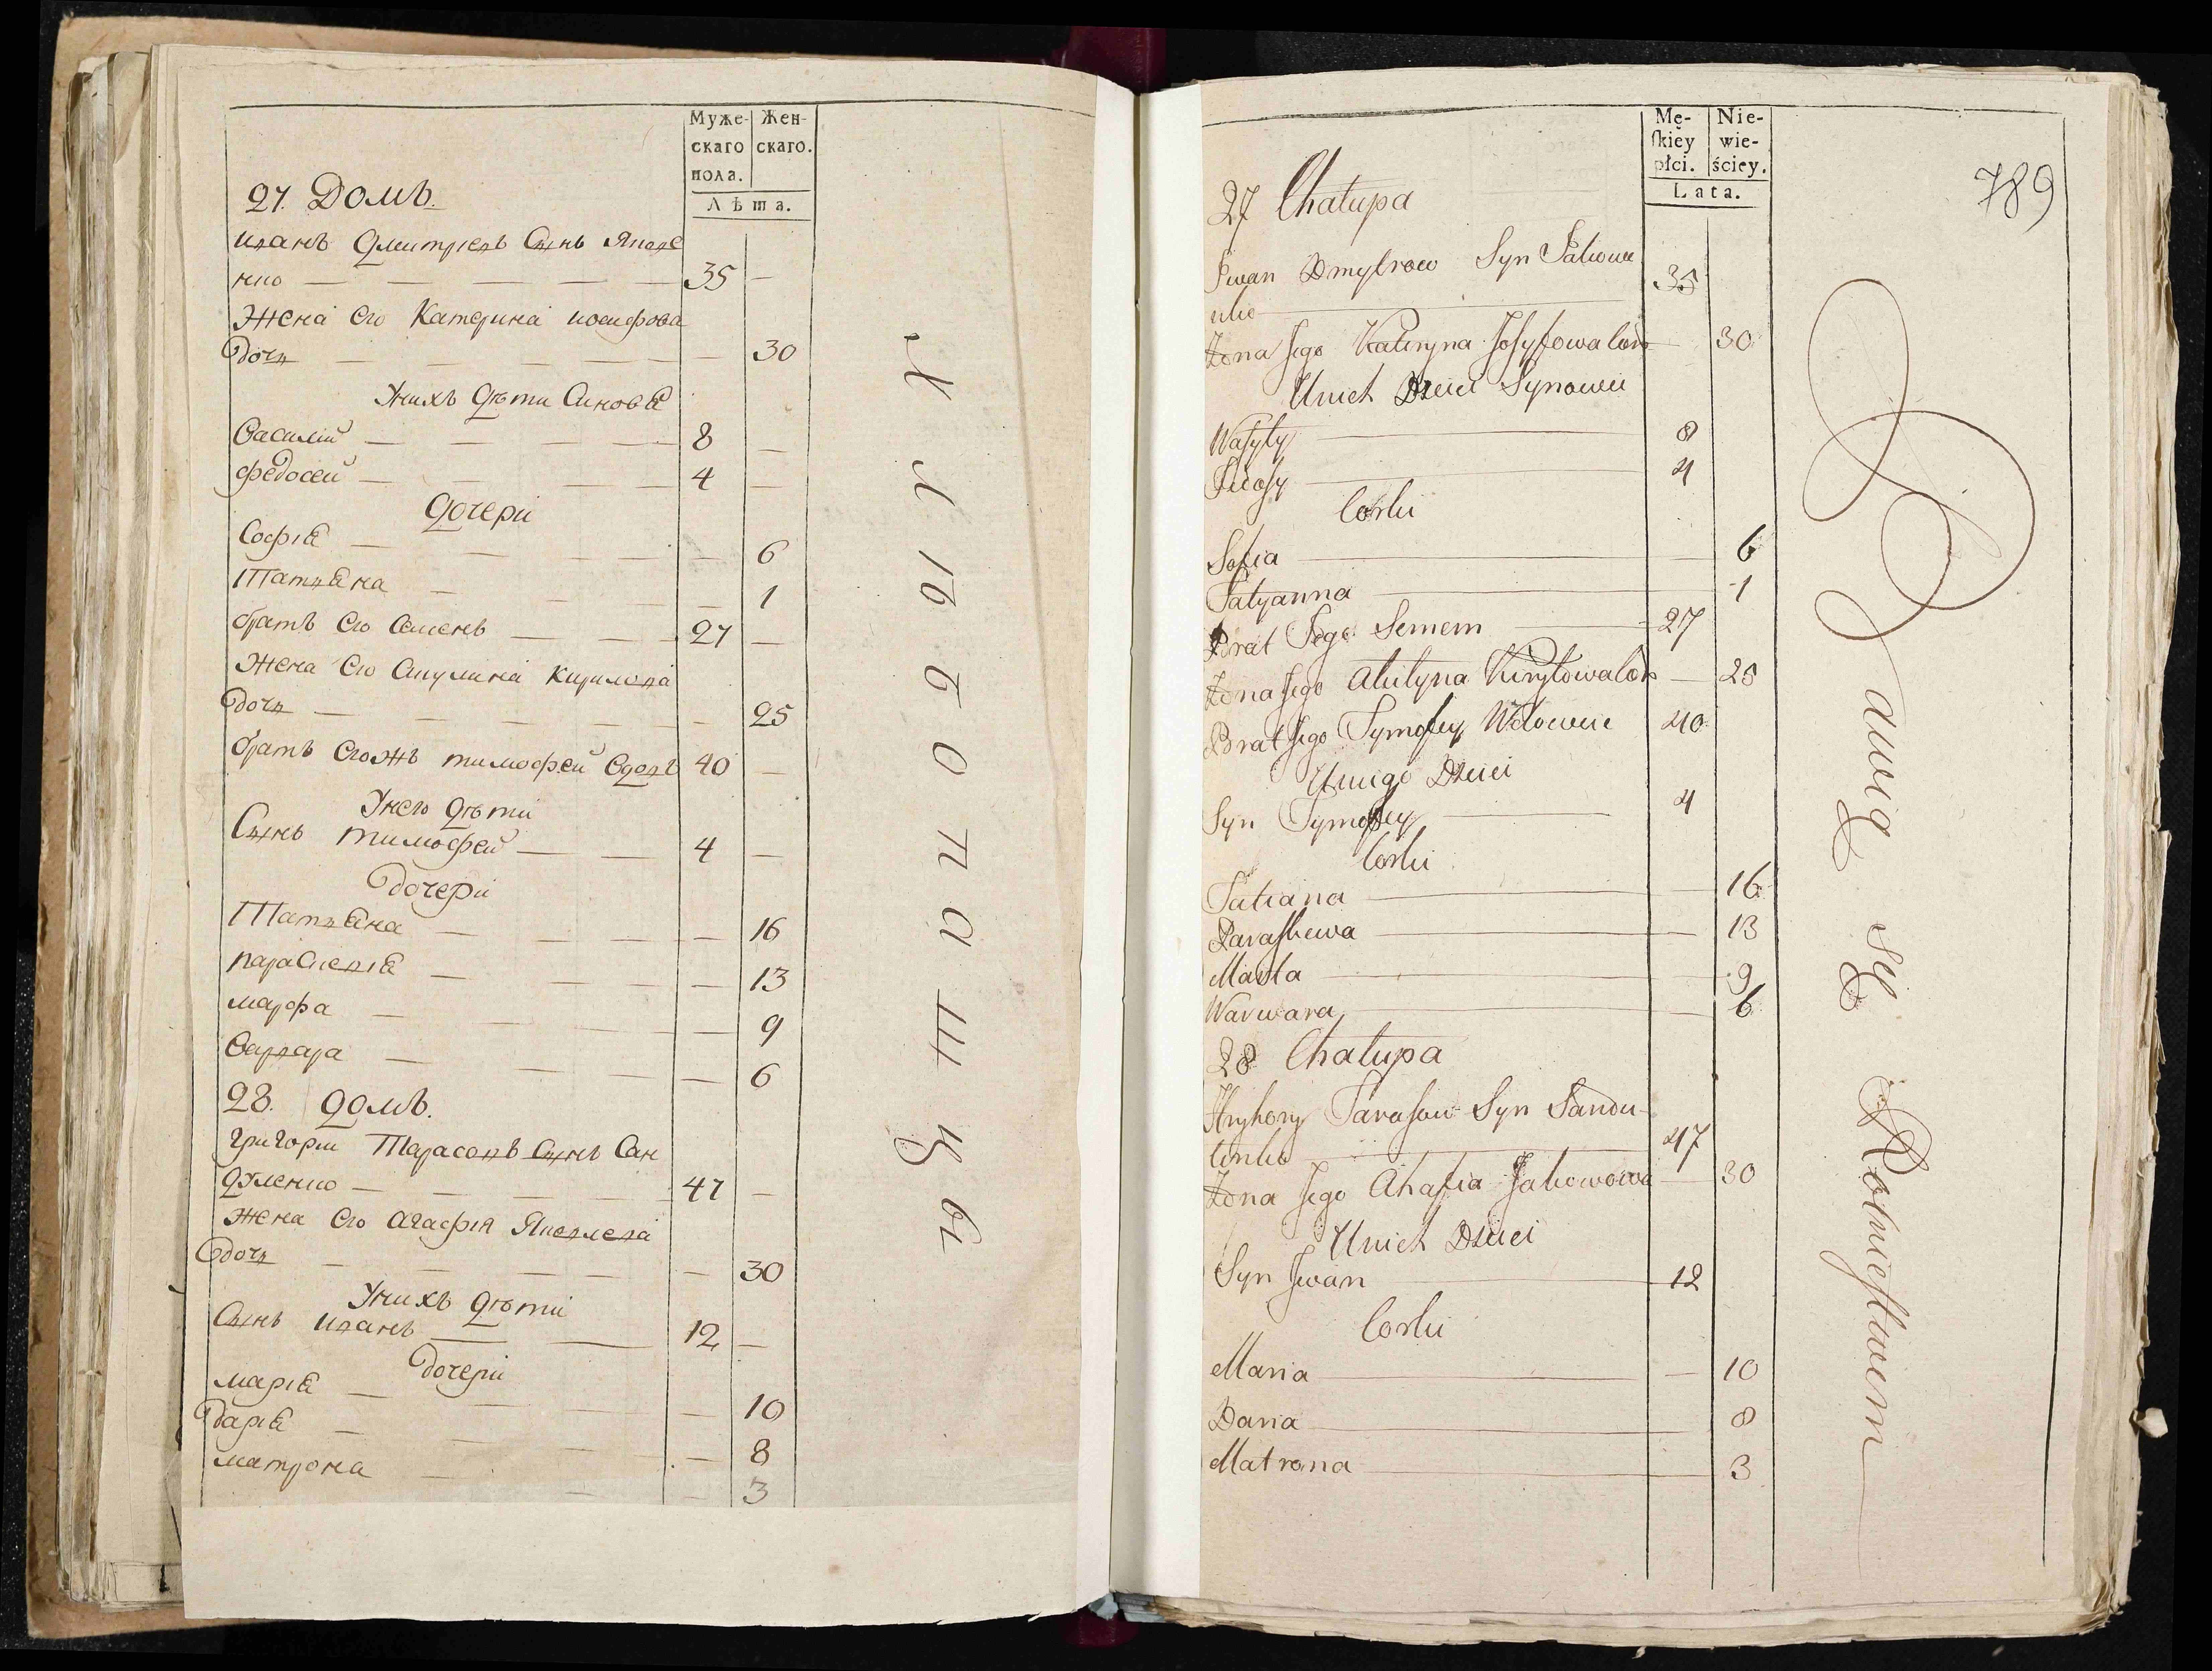 Муже-
скаго
пола.
Жен-
скаго.
Лѣта.
27. Домъ.
иванъ Дмитріевъ Сынъ Якове
нко — 35 —
Жена Его Катерина иосифова
дочь — 30
Унихъ Дѣти Синовя
Василій — 8 —
Федосей — 4 —
Дочери
Софія — 6
Татьяна — 1
братъ Его Семенъ — 27 —
Жена Его Акулина Кирилова
дочь — 25
братъ Егожъ тимофей Вдовъ 40 —
Унего Дѣти
Сынъ тимофей — 4 —
дочери
Татьяна — 16
параскевія — 13
марфа — 9
Варвара — 6
28. Домъ.
Григорій Тарасовъ Сынъ Сан
дуленко — 47 —
жена Его Агафія Яковлева
дочь — 30
Унихъ Дѣти
Сынъ иванъ — 12 —
дочери
марія — 10
дарія — 8
матрона — 3
Хлѣбопашцы
Mę-
skiey
płci.
Nie-
wie-
ściey.
Lata.
789
27 Chałupa
Jwan Dmytrow Syn Jakowe
nko — 35
Żona Jego Kateryna Josyfowa Cór — 30
Unich Dzieci Synowie
Wasyly — 8
Fedosy — 4
Corki
Sofia — 6
Tatyanna — 1
Brat Jego Semem — 27
Żona Jego Akilyna Kiryłowa Cór — 25
Brat Jego Tymofey Wdowiec 40
Uniego Dzieci
Syn Tymofey — 4
Corki
Tatiana — 16
Paraskewa — 13
Marta — 9
Warwara — 6
28 Chałupa
Hryhory Tarasow Syn Sandu-
lenko — 47
Żona Jego Ahafia Jakowowa — 30
Unich Dzieci
Syn Jwan — 12
Corki
Maria — 10
Daria — 8
Matrona — 3
Bawią się Rolnictwem